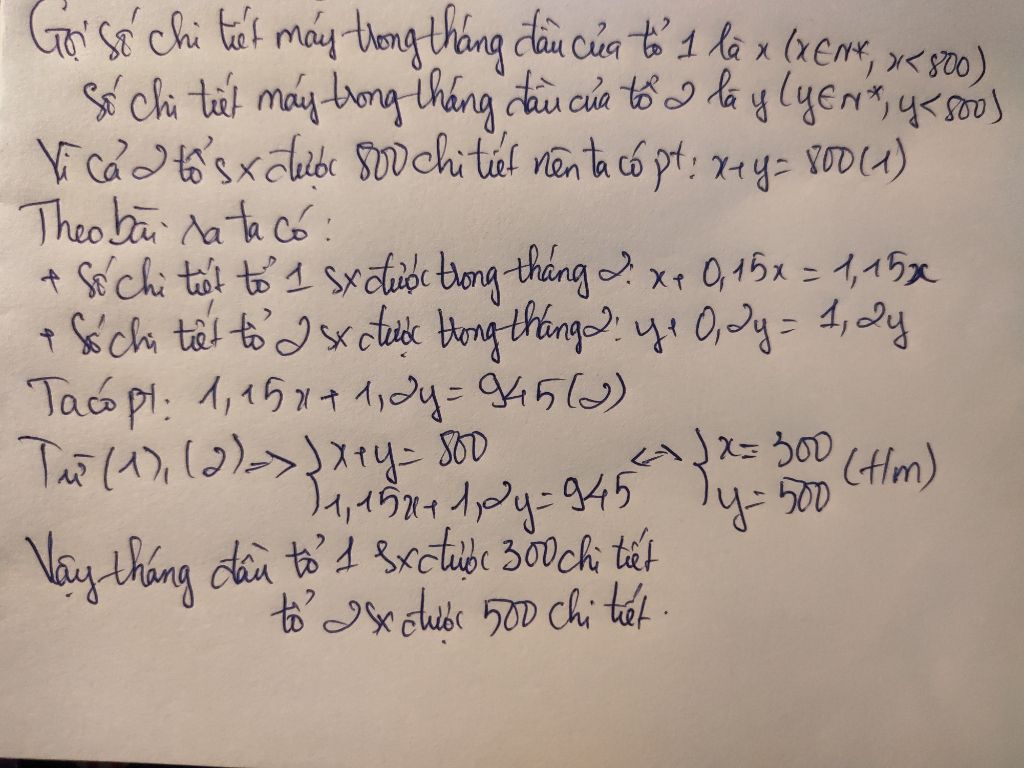 Gọi số chi tiết máy trong tháng đầu của tổ 1 là x (x∈N*, x<800)
Số chi tiết máy trong tháng đầu của tổ 2 là y (y∈N*, y<800)
Vì cả 2 tổ sx được 800 chi tiết nên ta có pt: x+y=800(1)
Theo bài ra ta có:
+ Số chi tiết tổ 1 sx được trong tháng 2: x+0,15x=1,15x
+ Số chi tiết tổ 2 sx được trong tháng 2: y+0,2y=1,2y
Ta có pt: 1,15x+1,2y=945(2)
Từ (1),(2)=> {x+y=800 <=> {x=300 (t/m)
{1,15x+1,2y=945 {y=500
Vậy tháng đầu tổ 1 sx được 300 chi tiết
tổ 2 sx được 500 chi tiết.